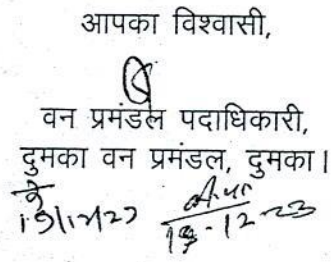 आपका विश्वासी,
वन प्रमंडल पदाधिकारी,
दुमका वन प्रमंडल, दुमका।
-12-23